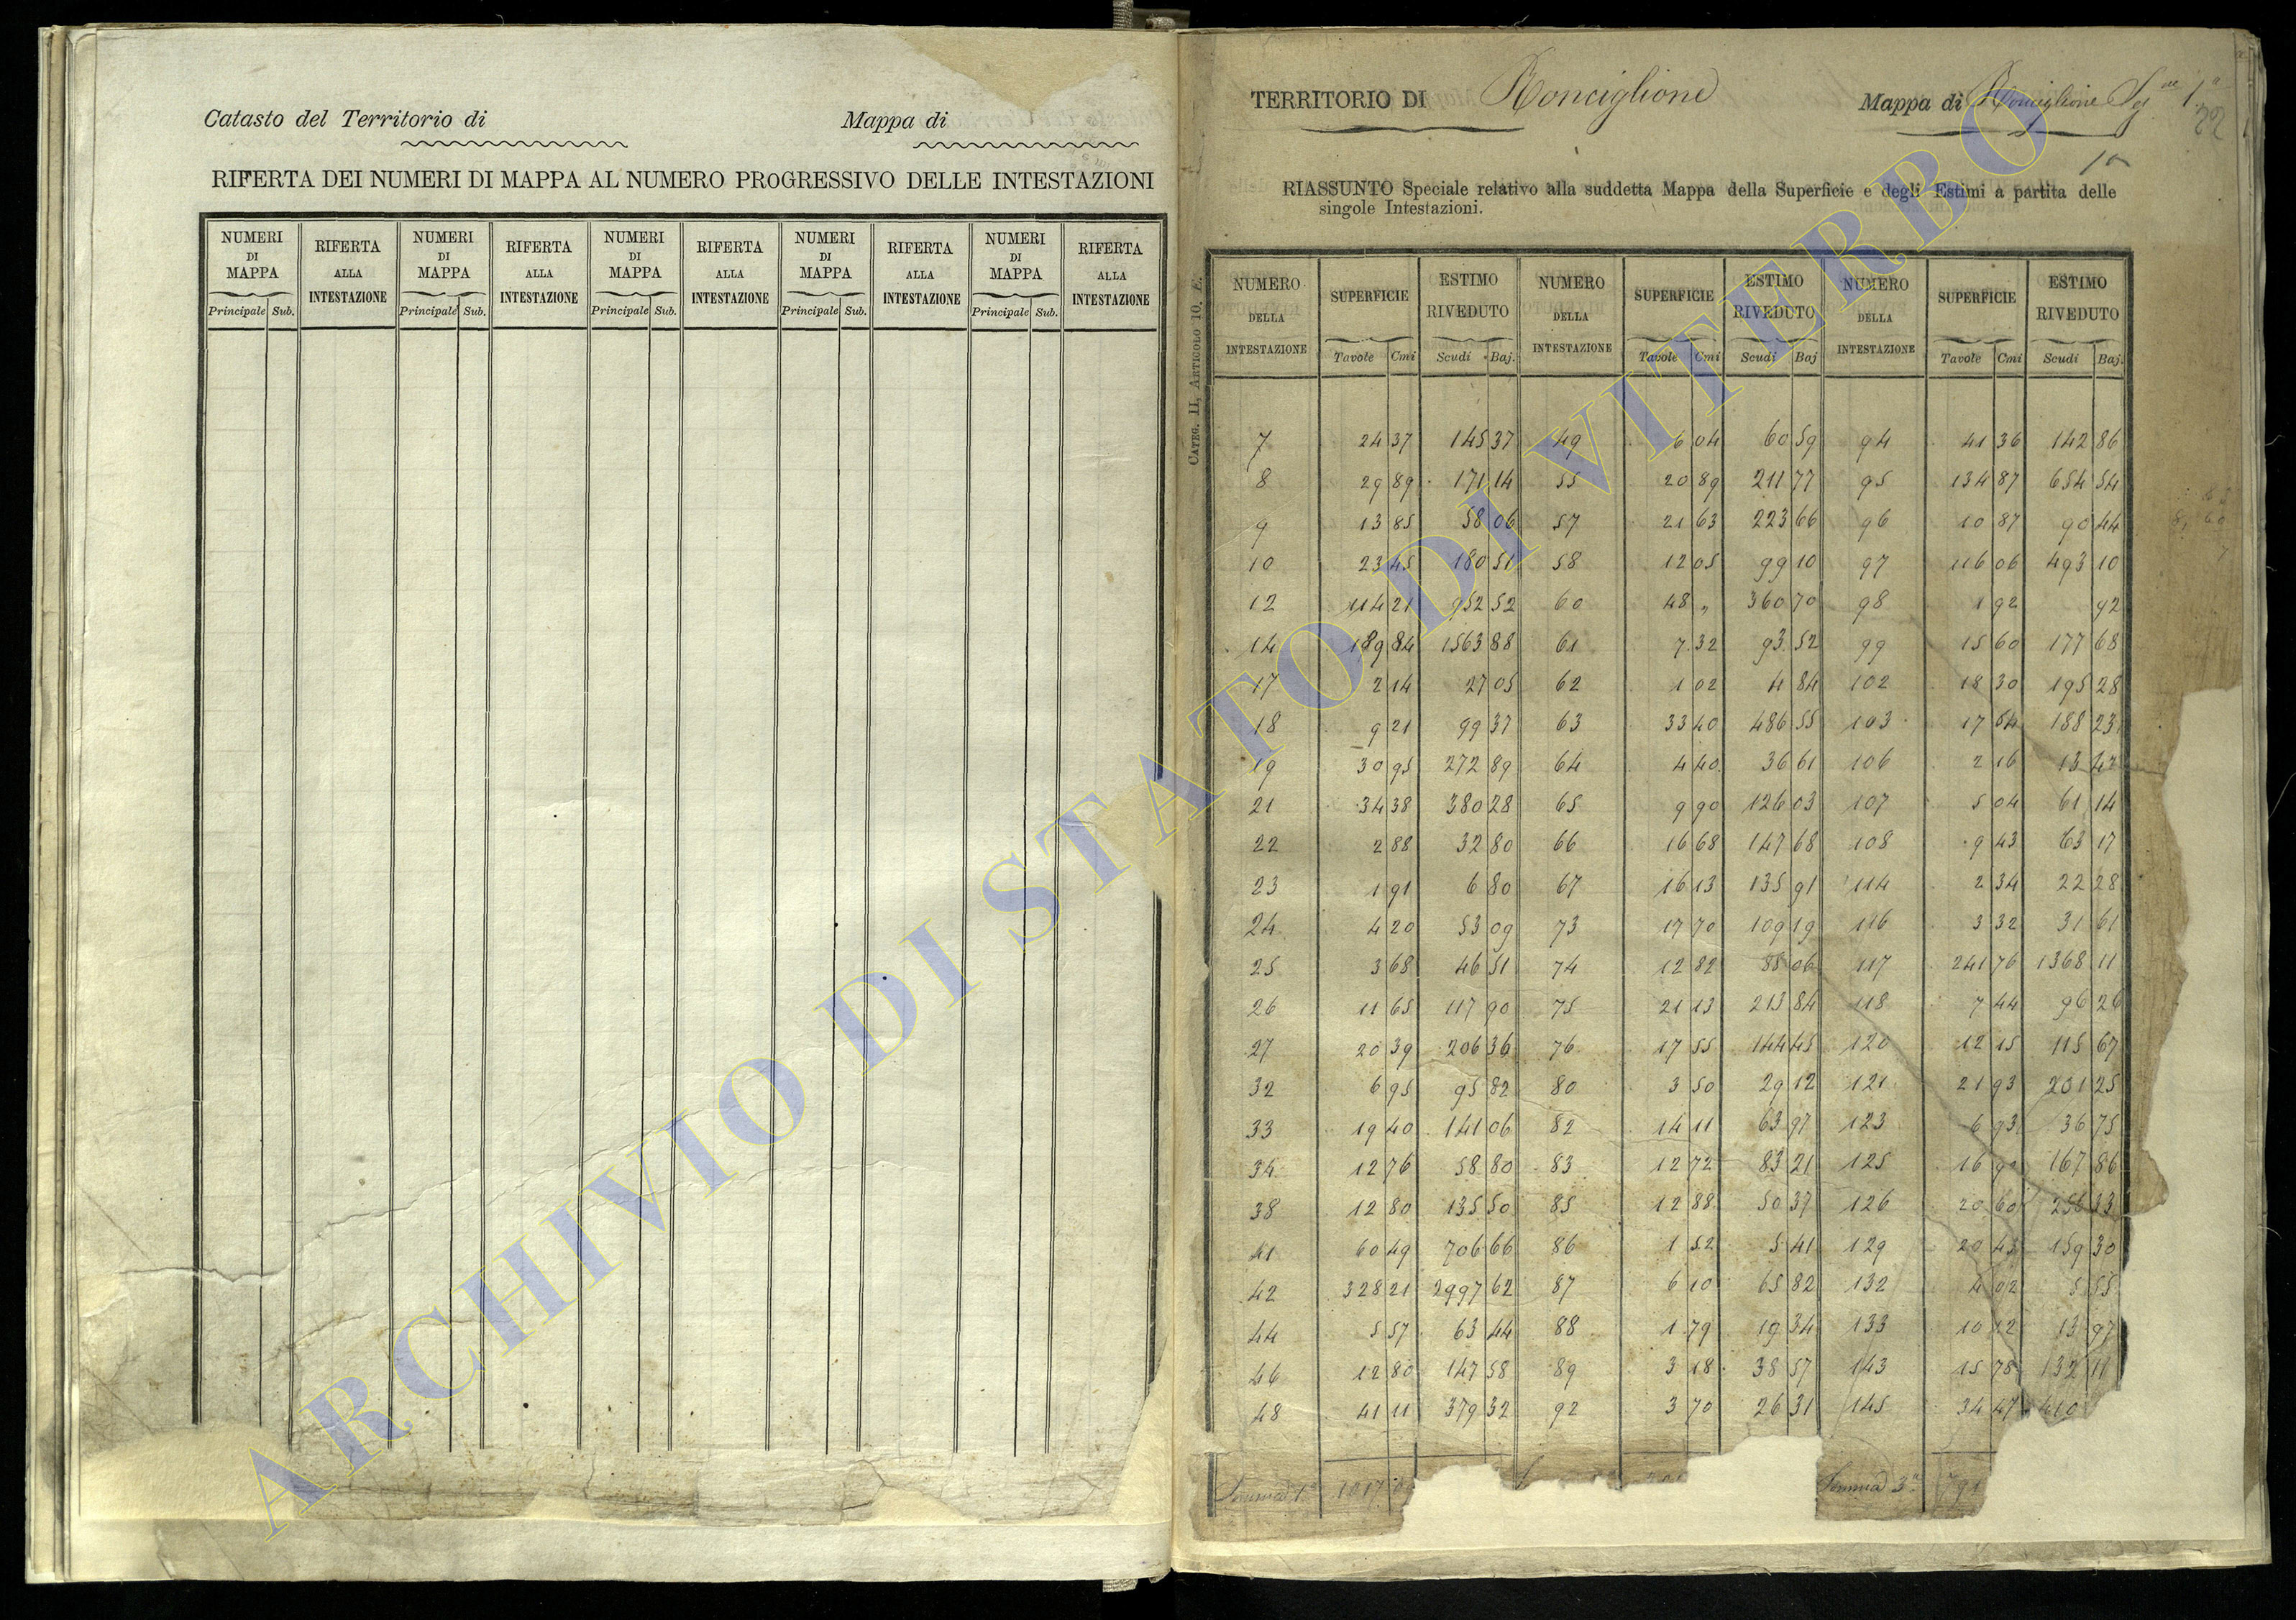 Catasto del Territorio di Mappa di
RIFERTA DEI NUMERI DI MAPPA AL NUMERO PROGRESSIVO DELLE INTESTAZIONI
NUMERI DI MAPPA RIFERTA ALLA INTESTAZIONE NUMERI DI MAPPA RIFERTA ALLA INTESTAZIONE NUMERI DI MAPPA RIFERTA ALLA INTESTAZIONE NUMERI DI MAPPA RIFERTA ALLA INTESTAZIONE NUMERI DI MAPPA RIFERTA ALLA INTESTAZIONE
Principale Sub. Principale Sub. Principale Sub. Principale Sub. Principale Sub.
TERRITORIO DI Ronciglione Mappa di Ronciglione 1ª
22
RIASSUNTO Speciale relativo alla suddetta Mappa della Superficie e degli Estimi a partita delle
singole Intestazioni.
CATEG. II, ARTICOLO 10. E.
NUMERO DELLA INTESTAZIONE SUPERFICIE ESTIMO RIVEDUTO NUMERO DELLA INTESTAZIONE SUPERFICIE ESTIMO RIVEDUTO NUMERO DELLA INTESTAZIONE SUPERFICIE ESTIMO RIVEDUTO
Tavole Cmi Scudi Baj. Tavole Cmi Scudi Baj Tavole Cmi Scudi Baj.
7 24 37 145 37 49 6 04 60 59 94 41 36 142 86
8 29 89 171 14 55 20 89 211 77 95 134 87 654 54
9 13 85 58 06 57 21 63 223 66 96 10 87 90 44
10 23 45 180 51 58 12 05 99 10 97 116 06 493 10
12 114 21 952 52 60 48 „ 360 70 98 1 92 92
14 189 84 1563 88 61 7 32 93 52 99 15 60 177 68
17 2 14 27 05 62 1 02 4 84 102 18 30 195 28
18 9 21 99 37 63 33 40 486 55 103 17 54 188 23
19 30 95 272 89 64 4 40 36 61 106 2 16 13 42
21 34 38 380 28 65 9 90 126 03 107 5 04 61 14
22 2 88 32 80 66 16 68 147 68 108 9 43 63 17
23 1 91 6 80 67 16 13 135 91 114 2 34 22 28
24 4 20 53 09 73 17 70 109 19 116 3 32 31 61
25 3 68 46 51 74 12 82 85 06 117 241 76 1368 11
26 11 65 117 90 75 21 13 213 84 118 7 44 96 26
27 20 39 206 36 76 17 55 144 45 120 12 15 115 67
32 6 95 95 82 80 3 50 29 12 121 21 93 201 25
33 19 40 141 06 82 14 11 63 97 123 6 93 36 75
34 12 76 58 80 83 12 72 83 21 125 16 167 86
38 12 80 135 50 85 12 88 50 37 126 20 60 256 33
41 60 49 706 66 86 1 52 5 41 129 20 45 159 30
42 328 21 2997 62 87 6 10 65 82 132 4 02 5 55
44 5 57 63 44 88 1 79 19 34 133 10 12 13 97
46 12 80 147 58 89 3 18 38 57 143 15 78 132 11
48 41 11 379 32 92 3 70 26 31 145 34 47 410
Somma 1ª 1017 Somma 3ª 791
ARCHIVIO DI STATO DI VITERBO